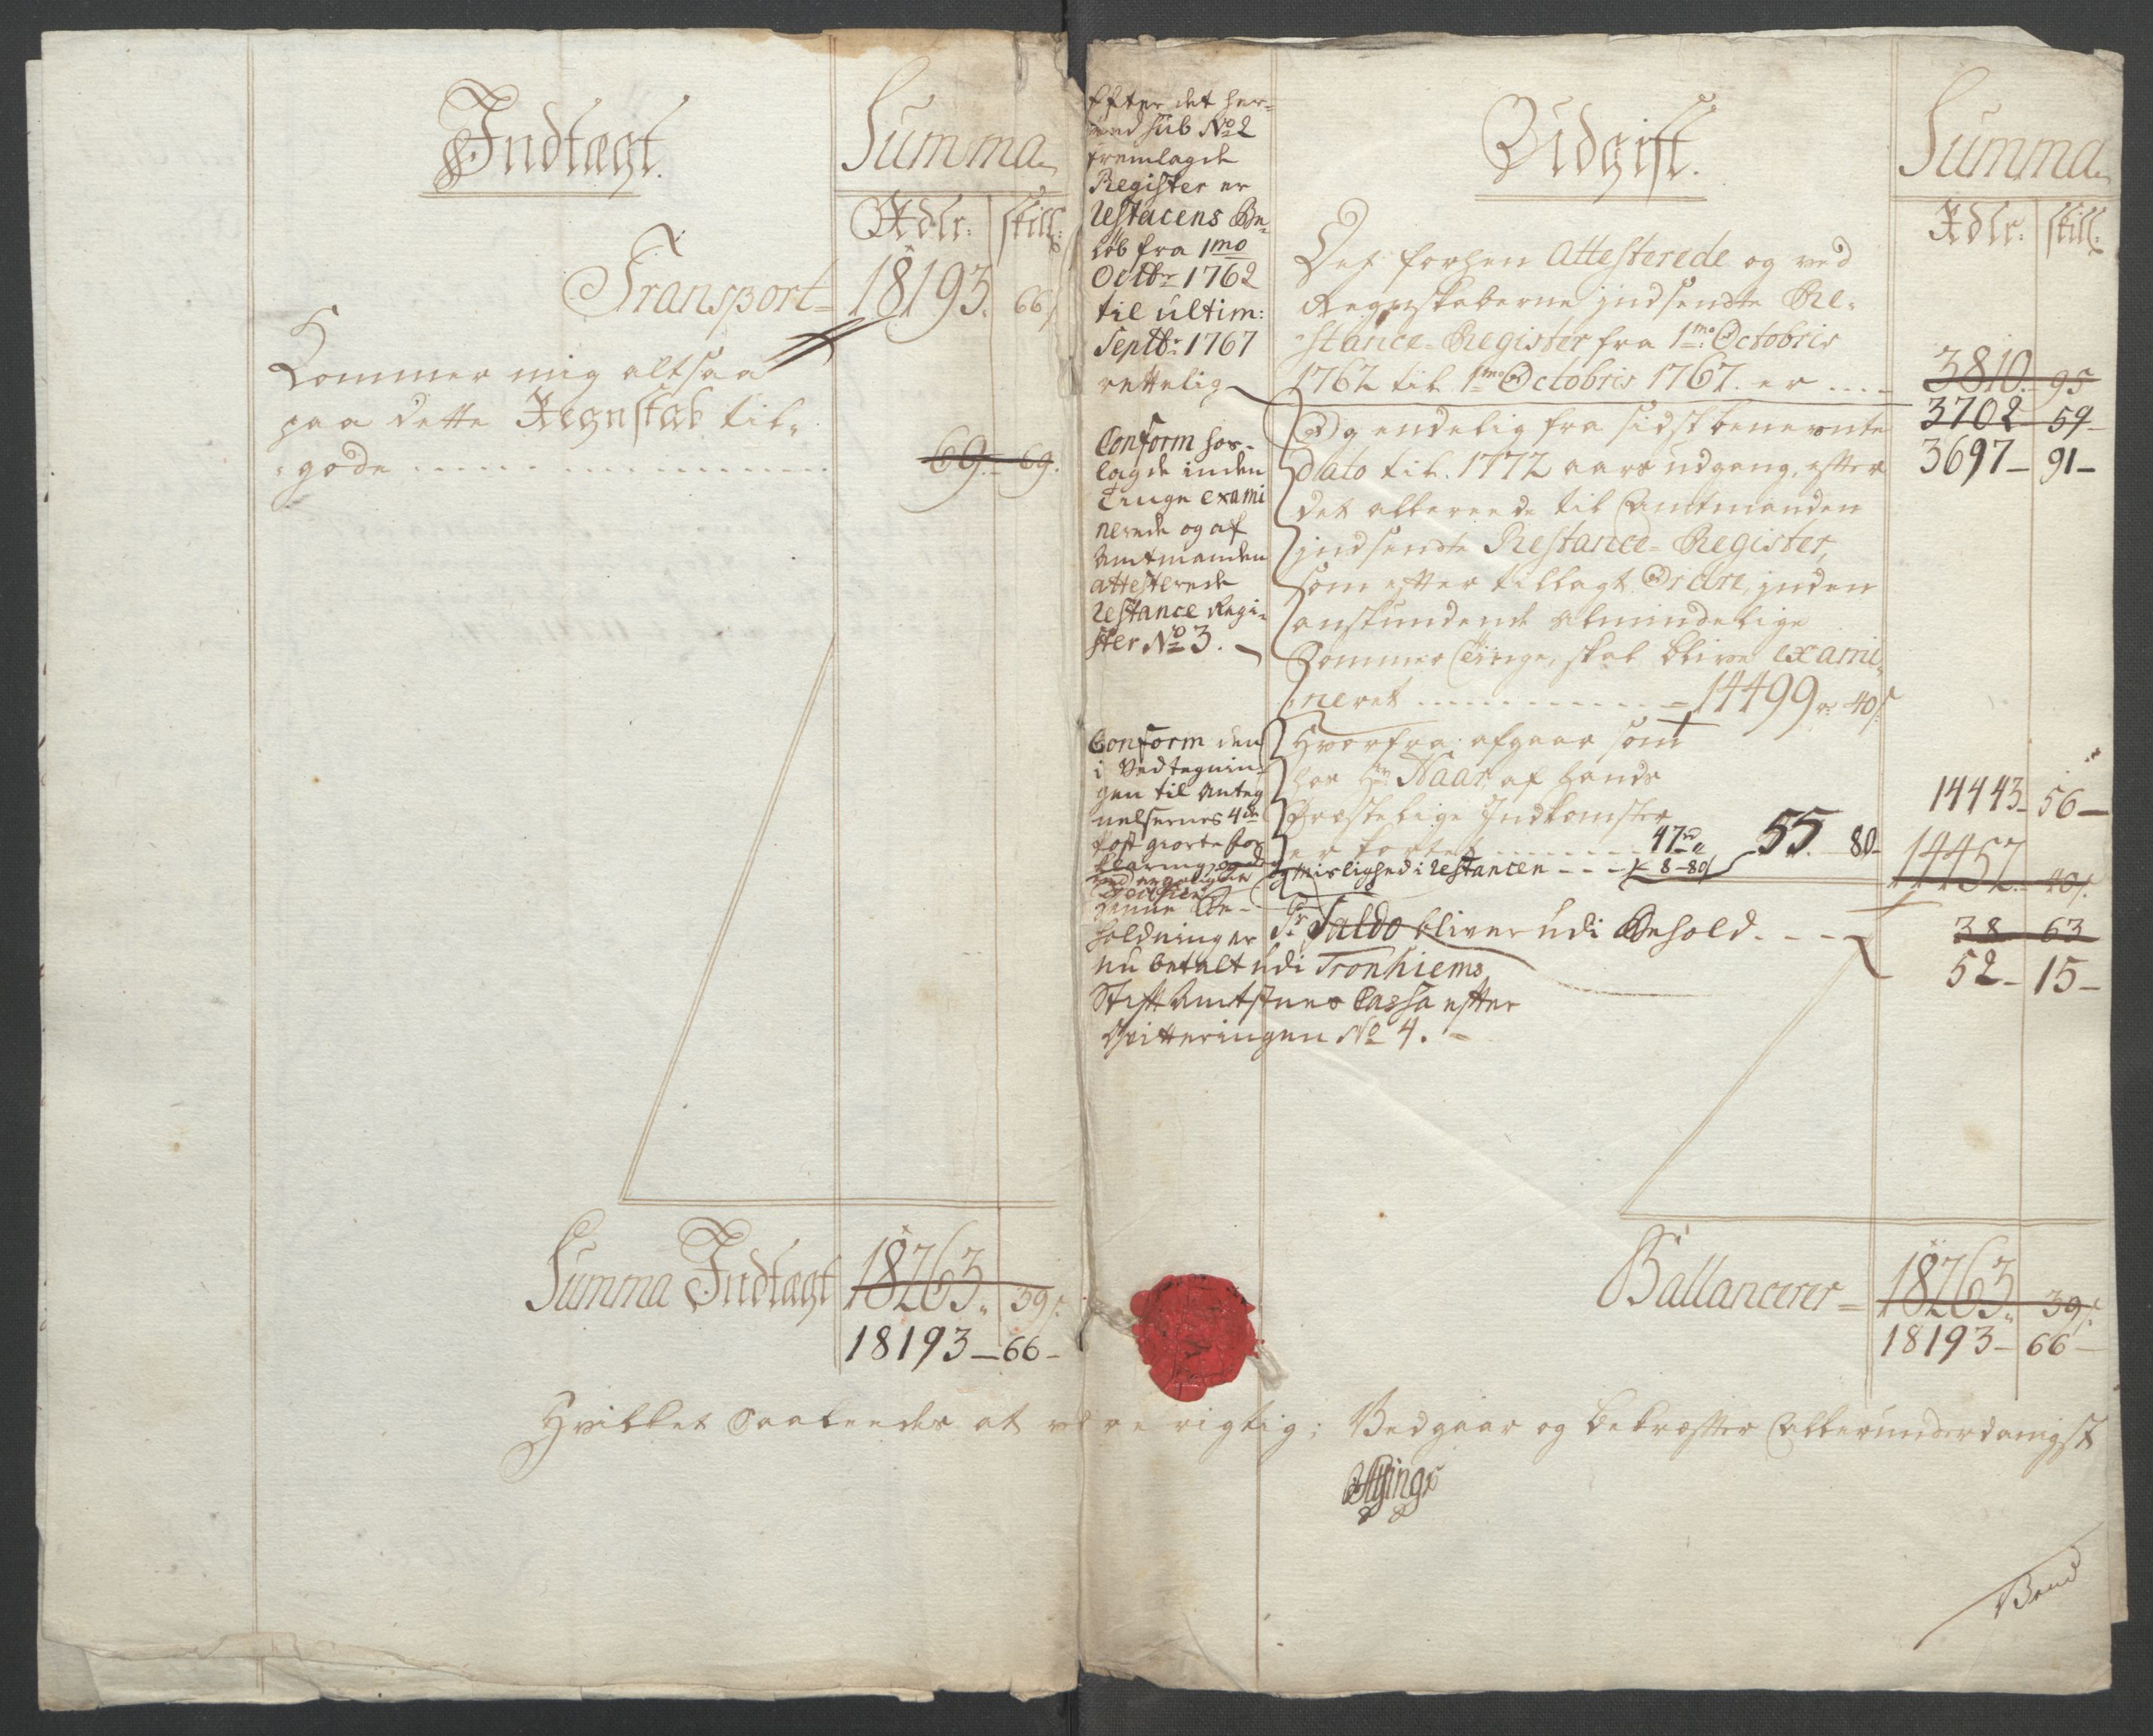 Indtægt.
Summa
Rdlr: skill:
Transport= 18193. 66ſ
Kommer mig altsaa
paa dette Regnskab til-
gode 69. 69.
Summa Indtægt 18263. 39ſ.
18193 - 66 -
Efter det her-
ved sub No 2
fremlagde
Register er
Restancens Be-
løb fra 1mo
Octbr 1762
til ultim:
Septbr 1767
rettelig
Conform for-
lagde inden
Tinge exami
nerede og af
Amtmanden
attesterede
Restance Regi-
ster No 3.
Conform den
i Vedtegnin-
gen til Anteg
nelsernes 4de
Post giorte for
klaring, og
denne Be-
holdning er
nu betalt udi Tronhiems
Stift Amtstues Cassa efter
Qvitteringen No 4.
Udgift.
Summa
Rdlr: skill:
Det forhen Attesterede og ved
Regnskaberne indsendte Re-
stance-Register fra 1mo Octobris
1762 til 1mo Octobris 1767. er 3810. 95
3702 59
Og endelig fra sidstbenevnte
Dato til 1772 aars udgang, efter 3697 - 91 -
det allereede til Amtmanden
indsendte Restance-Register,
som efter tillagt Ordre, inden
anstundende almindelige
Sommer Tinge, skal blive exami-
neret 14499 r 40ſ
Hvorfra afgaar som
hos Hr Naar af hands
Præstelige Indkomster 14443 - 56 -
er kortet 47rd
og Mislighed i Restancen 8 - 80 55. 80 -
14452. 40ſ.
Pr Saldo bliver udi Behold. 38 63
52 - 15 -
Ballancerer = 18263. 39ſ.
18193 - 66 -
Hvilket saaleedes at være rigtig; Vedgaar og bekræfter allerunderdanigst